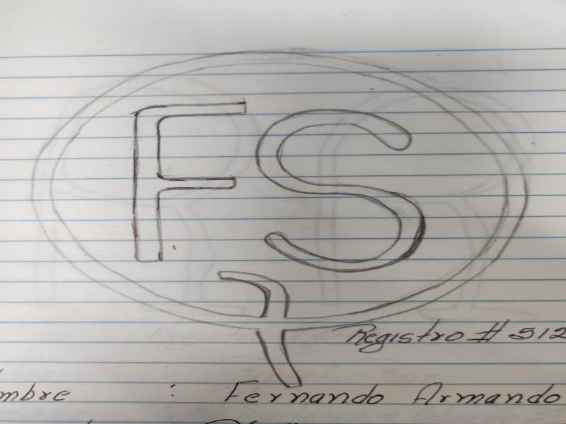 FS
Registro # 512
mbre : Fernando Armando